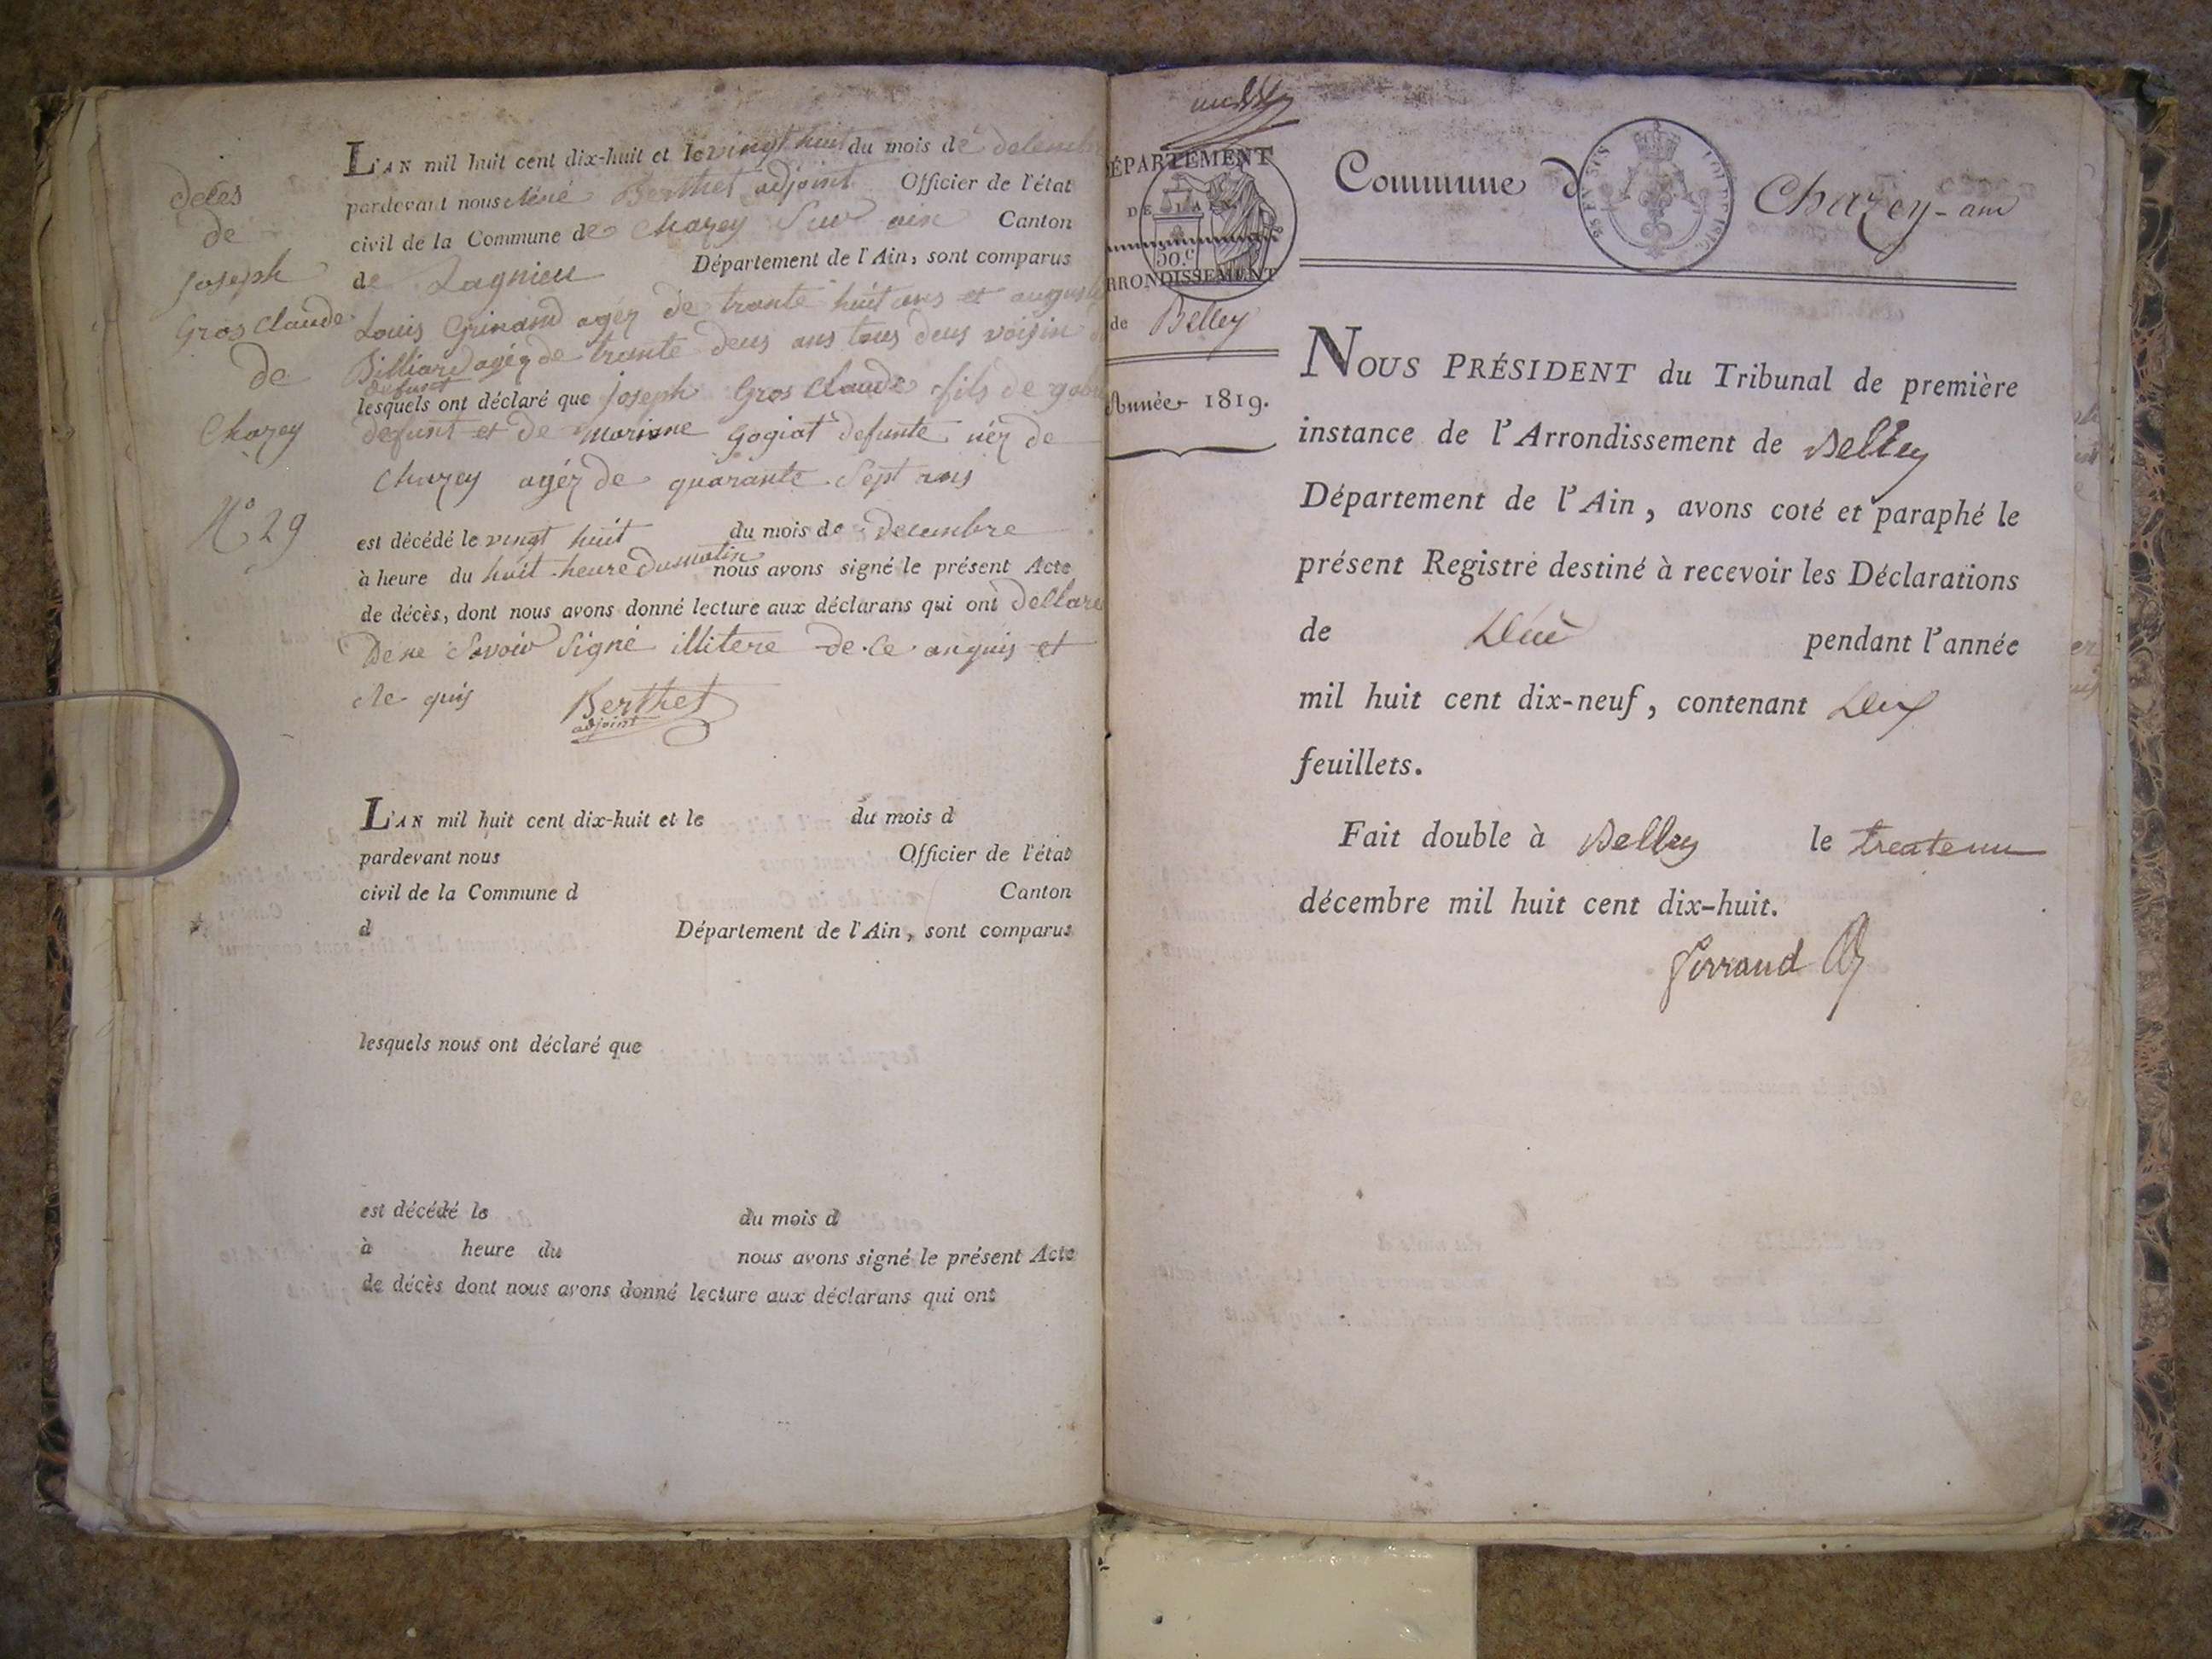 deces
de
joseph
Gros Claude
de
Chazey
N° 29
L'AN mil huit cent dix-huit et le vingt huit du mois de decembre
pardevant nous Berthet adjoint Officier de l'état
civil de la Commune de Chazey Sur ain Canton
de Lagnieu Département de l'Ain, sont comparus
Louis Grinand agéz de trante huit ans et auguste
Billiard agéz de trante deus ans tous deus voisin
defunt
lesquels ont déclaré que joseph Gros Claude fils de
defunt et de Marianne Gogiat defunte néz de
Chazey agéz de quarante Sept ans
est décédé le vingt huit du mois de decembre
à heure du huit heure du matin nous avons signé le présent Acte
de décès, dont nous avons donné lecture aux déclarans qui ont dellare
De ne Savoir Signé illitere de ce anquis et
re quis Berthet
adjoint
L'AN mil huit cent dix-huit et le du mois d
pardevant nous Officier de l'état
civil de la Commune d Canton
d Département de l'Ain, sont comparus
lesquels nous ont déclaré que
est décédé le du mois d
à heure du nous avons signé le présent Acte
de décès dont nous avons donné lecture aux déclarans qui ont
DÉPARTEMENT
DE L'AIN
50.c
ARRONDISSEMENT
de Belley
Année 1819.
Commune d Chazey-ain
NOUS PRÉSIDENT du Tribunal de première
instance de l'Arrondissement de Belley
Département de l'Ain, avons coté et paraphé le
présent Registre destiné à recevoir les Déclarations
de pendant l'année
mil huit cent dix-neuf, contenant
feuillets.
Fait double à Belley le trente un
décembre mil huit cent dix-huit.